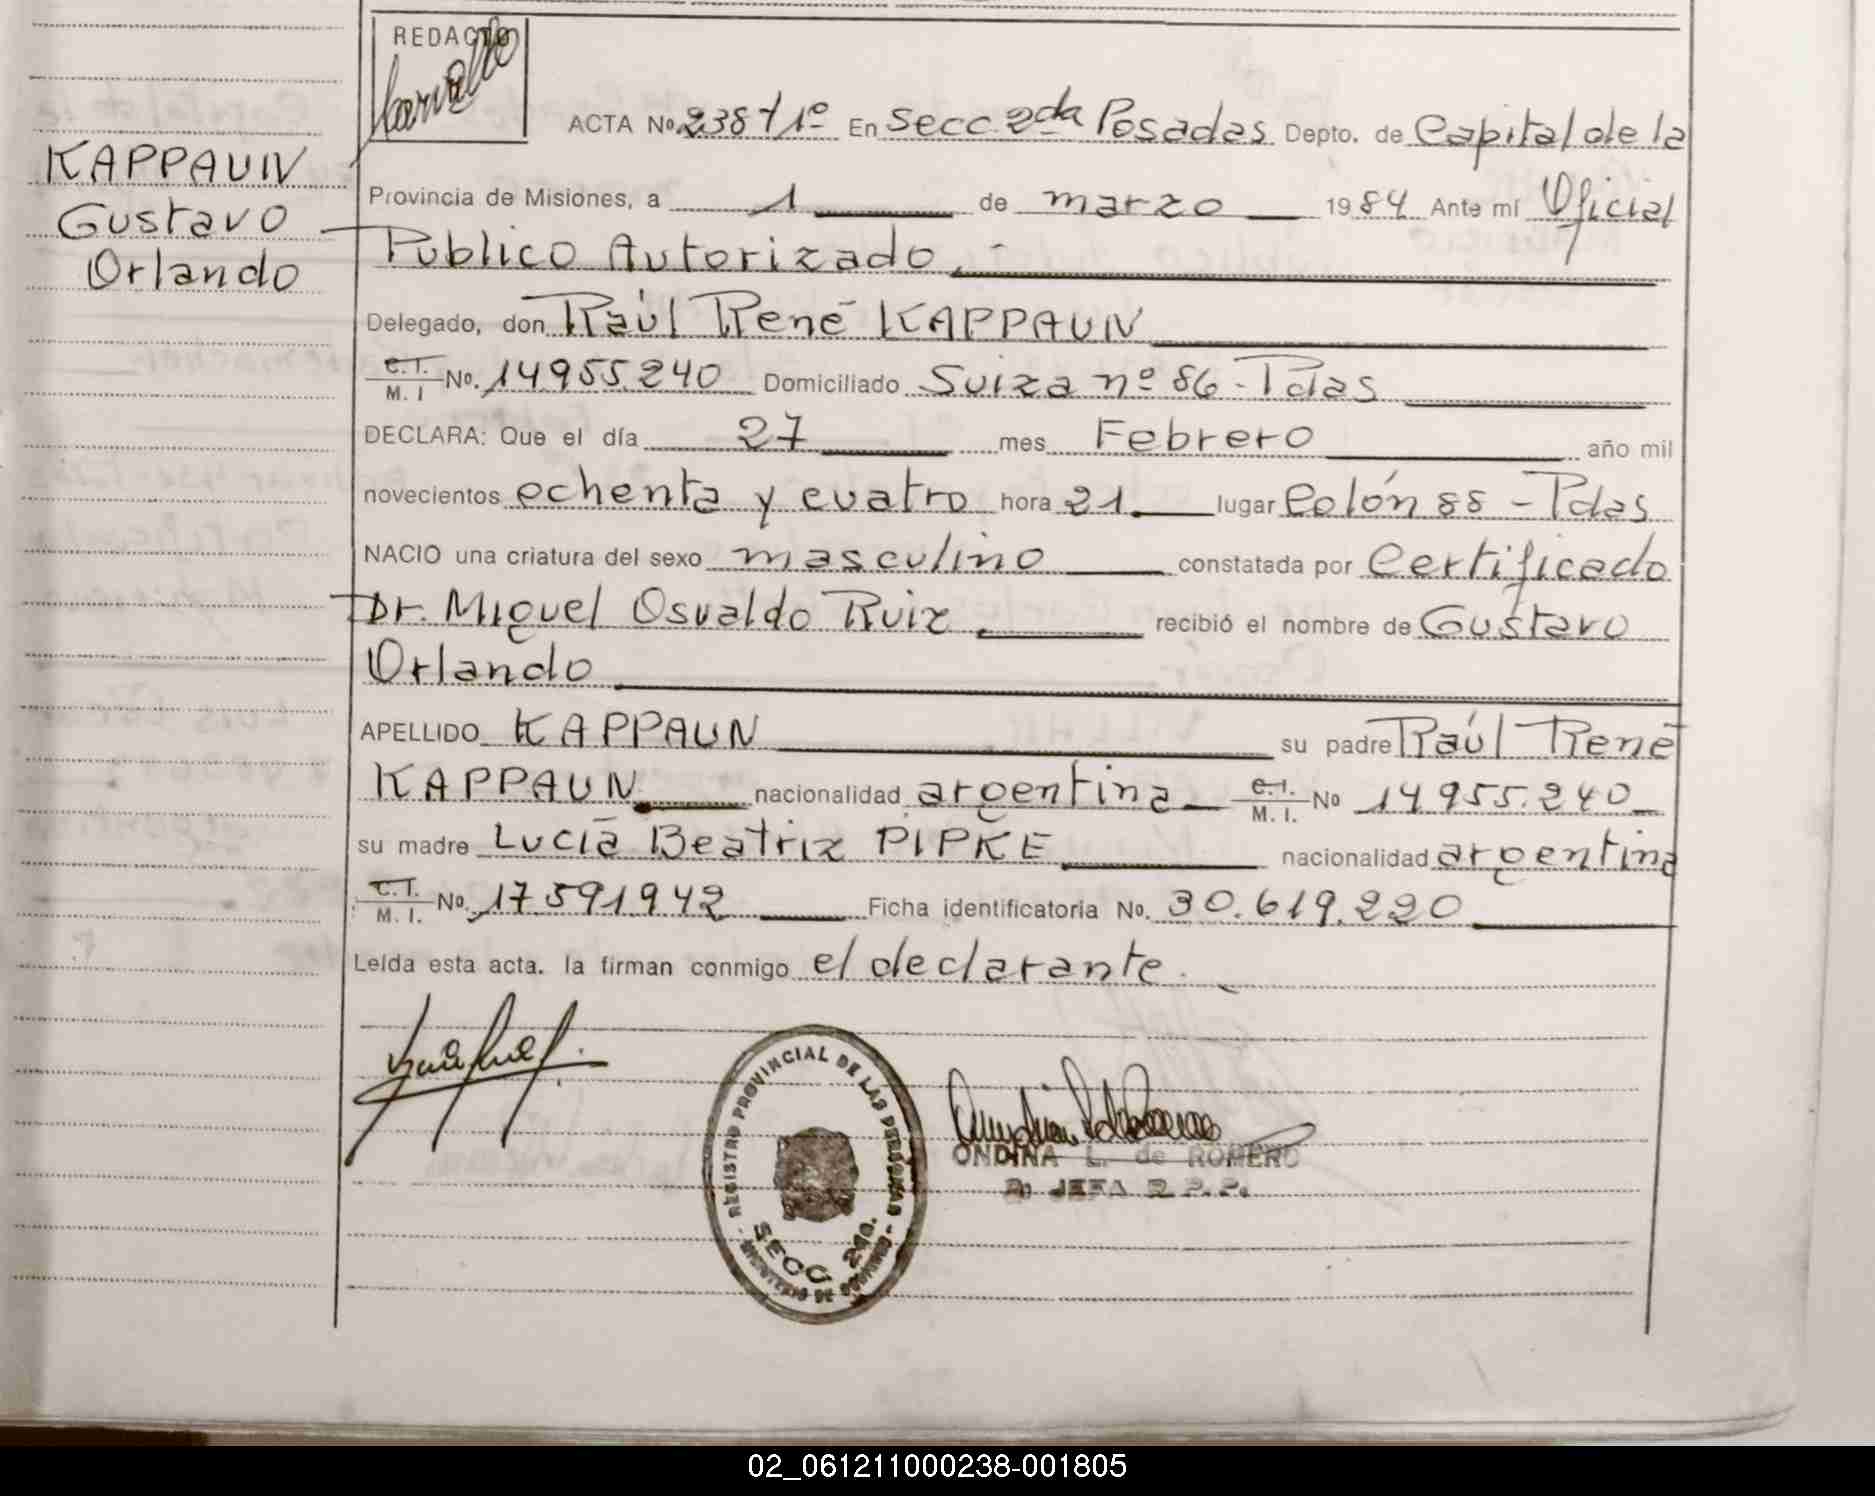 REDACTO
ACTA No. 238 T 1º En Secc. 2da Posadas Depto. de Capital de la
KAPPAUN
Gustavo
Orlando
Provincia de Misiones, a 1 de marzo 1984 Ante mí Oficial
Publico Autorizado.
Delegado, don Raúl René KAPPAUN
C.I. M. I No. 14955.240 Domiciliado Suiza nº 86 - Pdas
DECLARA: Que el día 27 mes Febrero año mil
novecientos ochenta y cuatro hora 21. lugar Colón 88 - Pdas
NACIO una criatura del sexo masculino constatada por Certificado
Dr. Miguel Osvaldo Ruiz. recibió el nombre de Gustavo
Orlando
APELLIDO KAPPAUN su padre Raúl René
KAPPAUN. nacionalidad argentina C.I. M. I. No 14955.240
su madre Lucía Beatriz PIPKE nacionalidad argentina
C.I. M. I. No. 17591942 Ficha identificatoria No. 30.619.220
Leída esta acta, la firman conmigo el declarante.
REGISTRO PROVINCIAL DE LAS PERSONAS
SECC. 2da.
ONDINA L. de ROMERO
JEFA R.P.P.
02_061211000238-001805